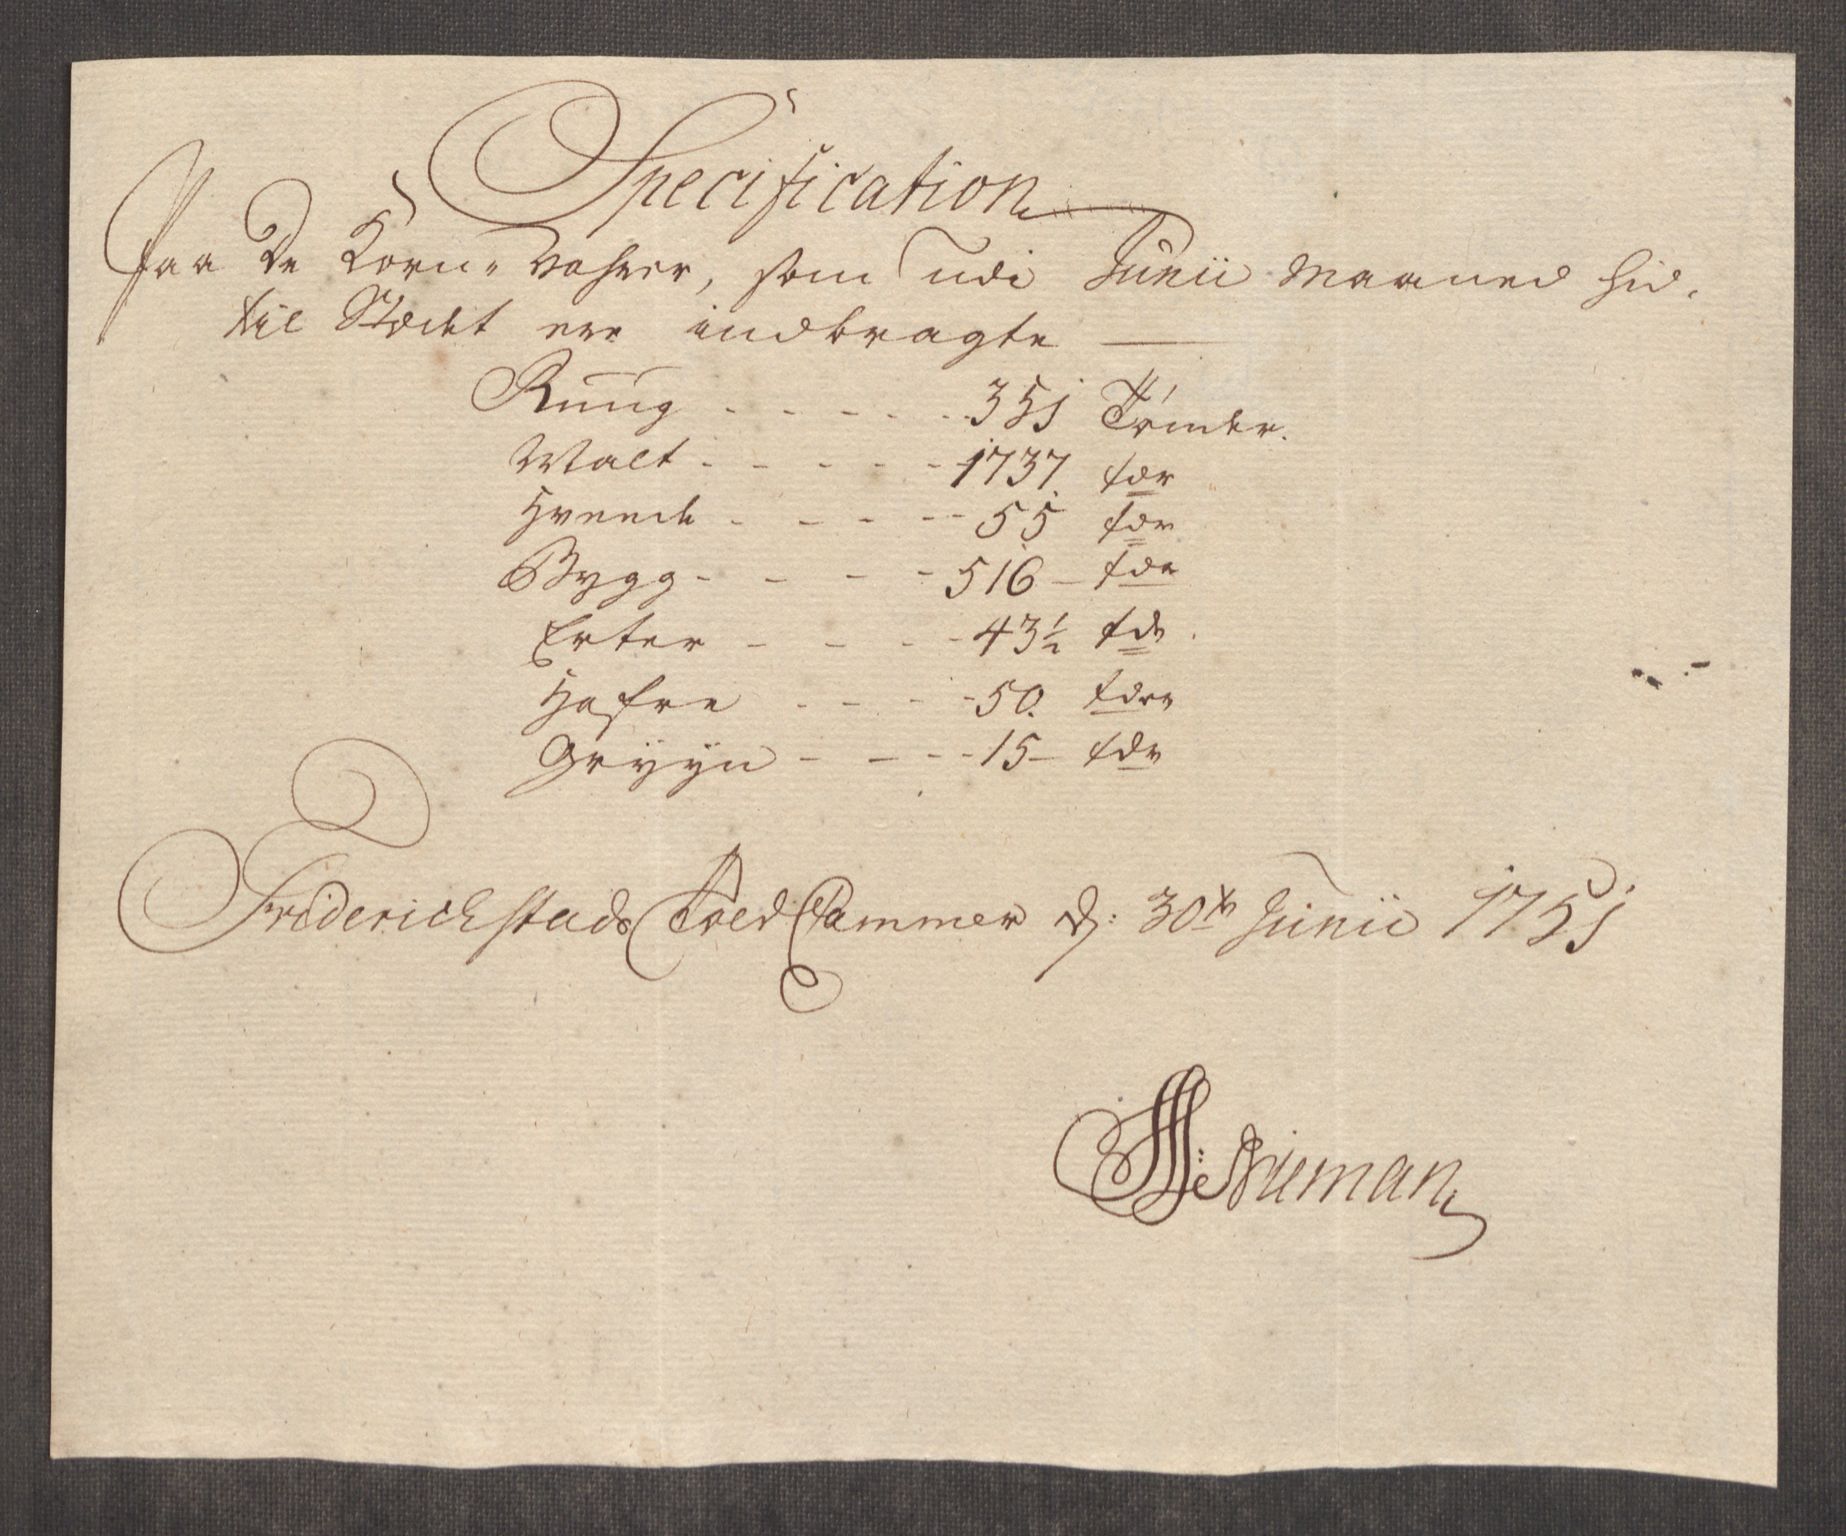 Specification
Paa De Korn-Vahrer, som udi Junii Maaned hid-
til Stædet ere indbragte
Ruug - - - - - - 351 Tønder.
Malt - - - - - - 1737. tdr
Hveede - - - - - 55 tdr
Bygg - - - - 516 - tdr
Erter - - - - 43½ tdr.
Hafre - - - - 50. tdr
Gryyn - - - - 15 - tdr
Friderichstads Told Cammer d: 30te Junii 1751
Nieman